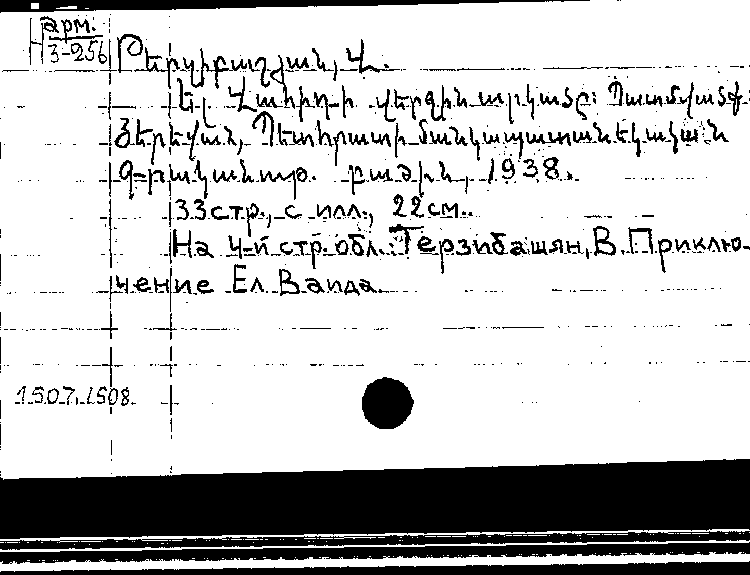 арм.
3-256
Թերզիբաշյան, Վ.
Ել Վահիդ-ի վերջին արկածը: Պատմվածք:
Յերեվան, Պետհրատի մանկապատանեկական
գ-րականութ. բաժին, 1938.
33 стр., с илл., 22 см..
На 4-й стр. обл.: Терзибашян, В. Приклю-
чение Ел Ваида.
1507.1508